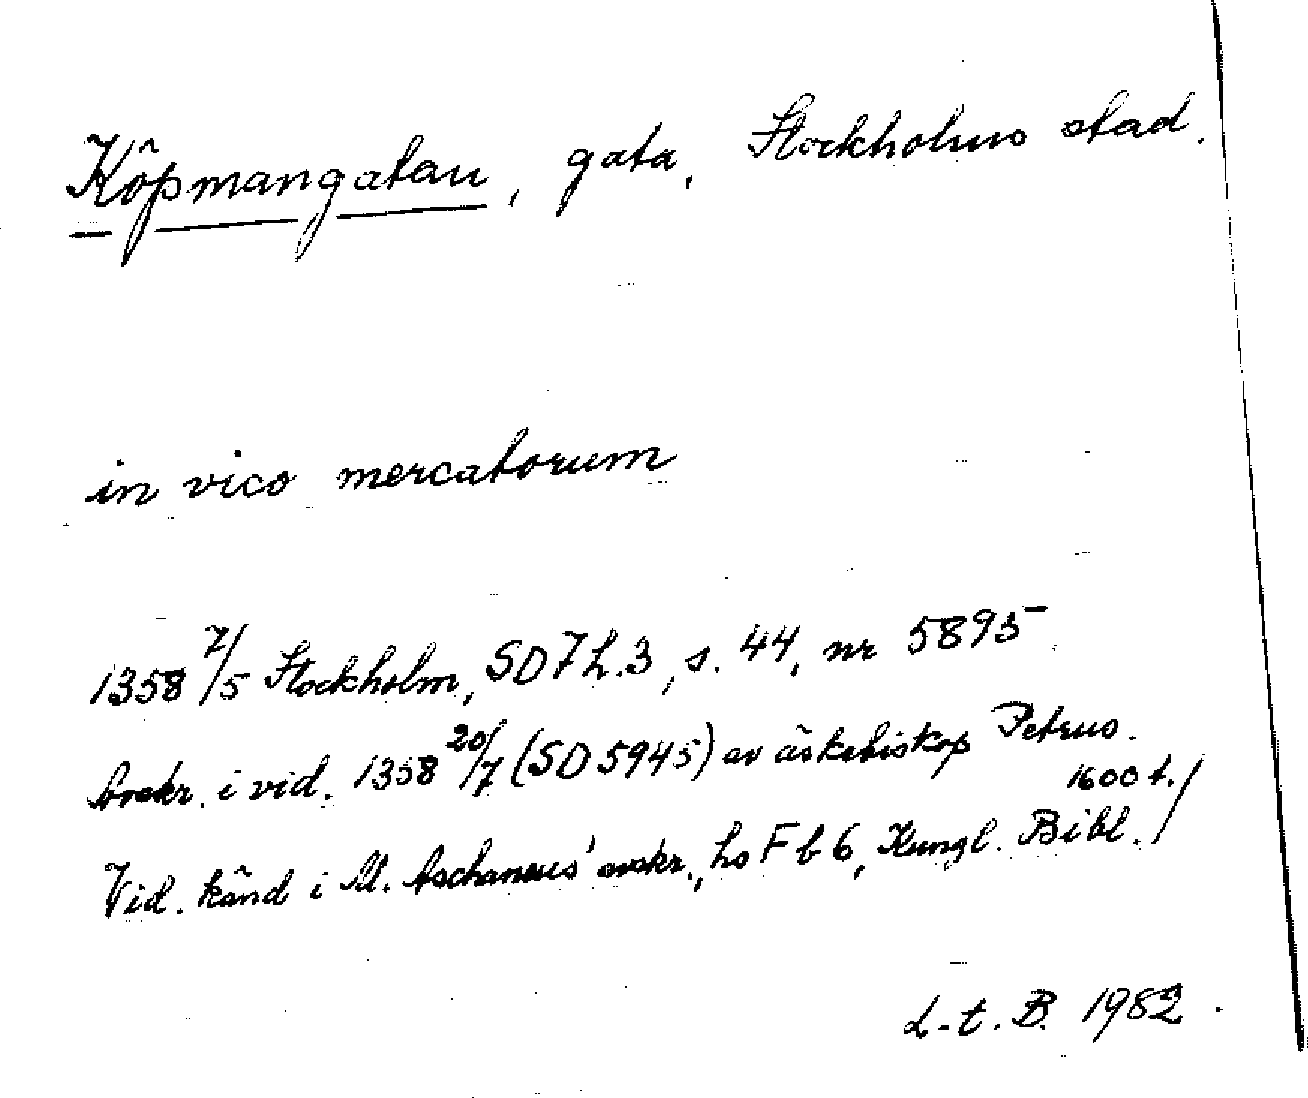 Köpmangatan, gata, Stockholms stad.
in vico mercatorum
1358 7/5 Stockholm, SD 7 h.3, s. 44, nr 5895
Avskr. i vid. 1358 20/7 (SD 5945) av ärkebiskop Petrus.
1600 t./
Vid. känd i M. Aschaneus' avskr., hs F b 6, Kungl. Bibl./
L. t. B. 1982.